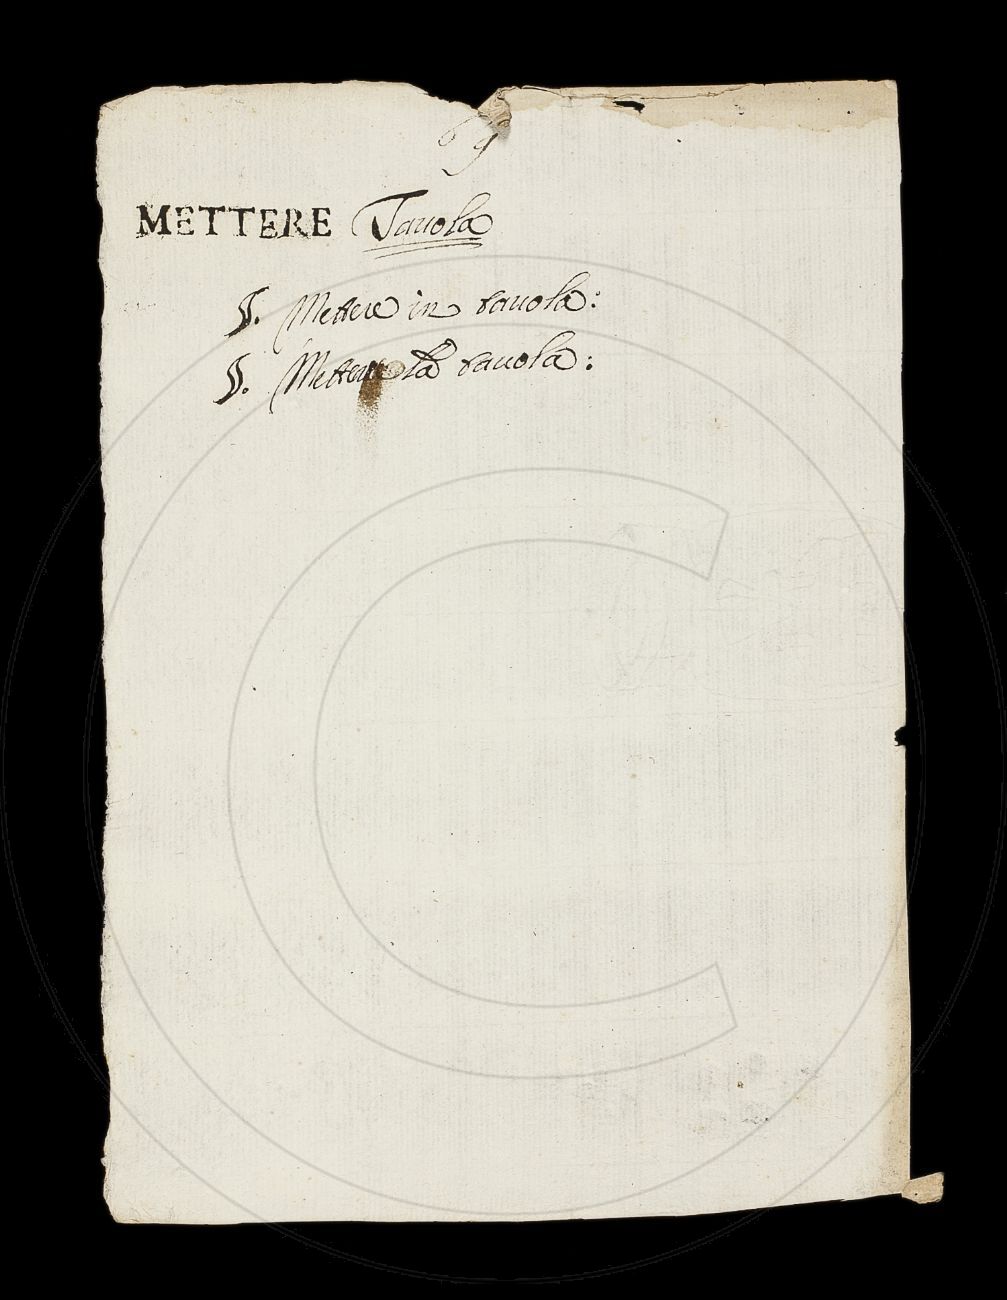 69
METTERE Tauola
§. Mettere in tauola:
§. Mettere la tauola: